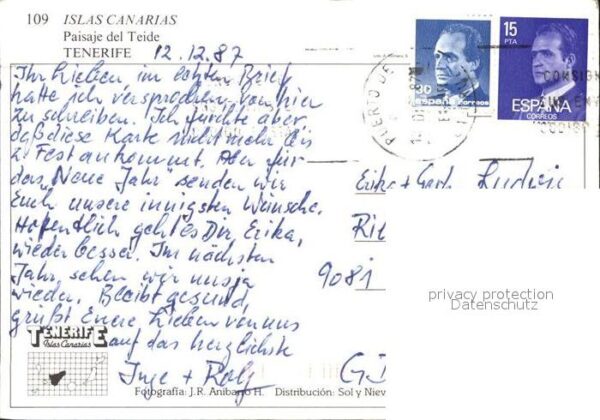 109 ISLAS CANARIAS
Paisaje del Teide
TENERIFE 12.12.87
Ihr Lieben im letzten Brief
hatte ich versprochen, von hier
zu schreiben. Ich fürchte aber
daß diese Karte nicht mehr bis
z. Fest ankommt. Aber für
das "Neue Jahr" senden wir
Euch unsere innigsten Wünsche.
Hoffentlich geht es Dir, Erika,
wieder besser. Im nächsten
Jahr sehen wir uns ja
wieder. Bleibt gesund,
grüßt Euere Lieben von uns
auf das herzlichste
Inge + Rolf
TENERIFE
Islas Canarias
Fotografía: J.R. Anibarro H. Distribución: Sol y Niev
30
españa correos
15
PTA
ESPAÑA
CORREOS
PUERTO DE
CONSIGN
Erika + Ludwig
9081
privacy protection
Datenschutz